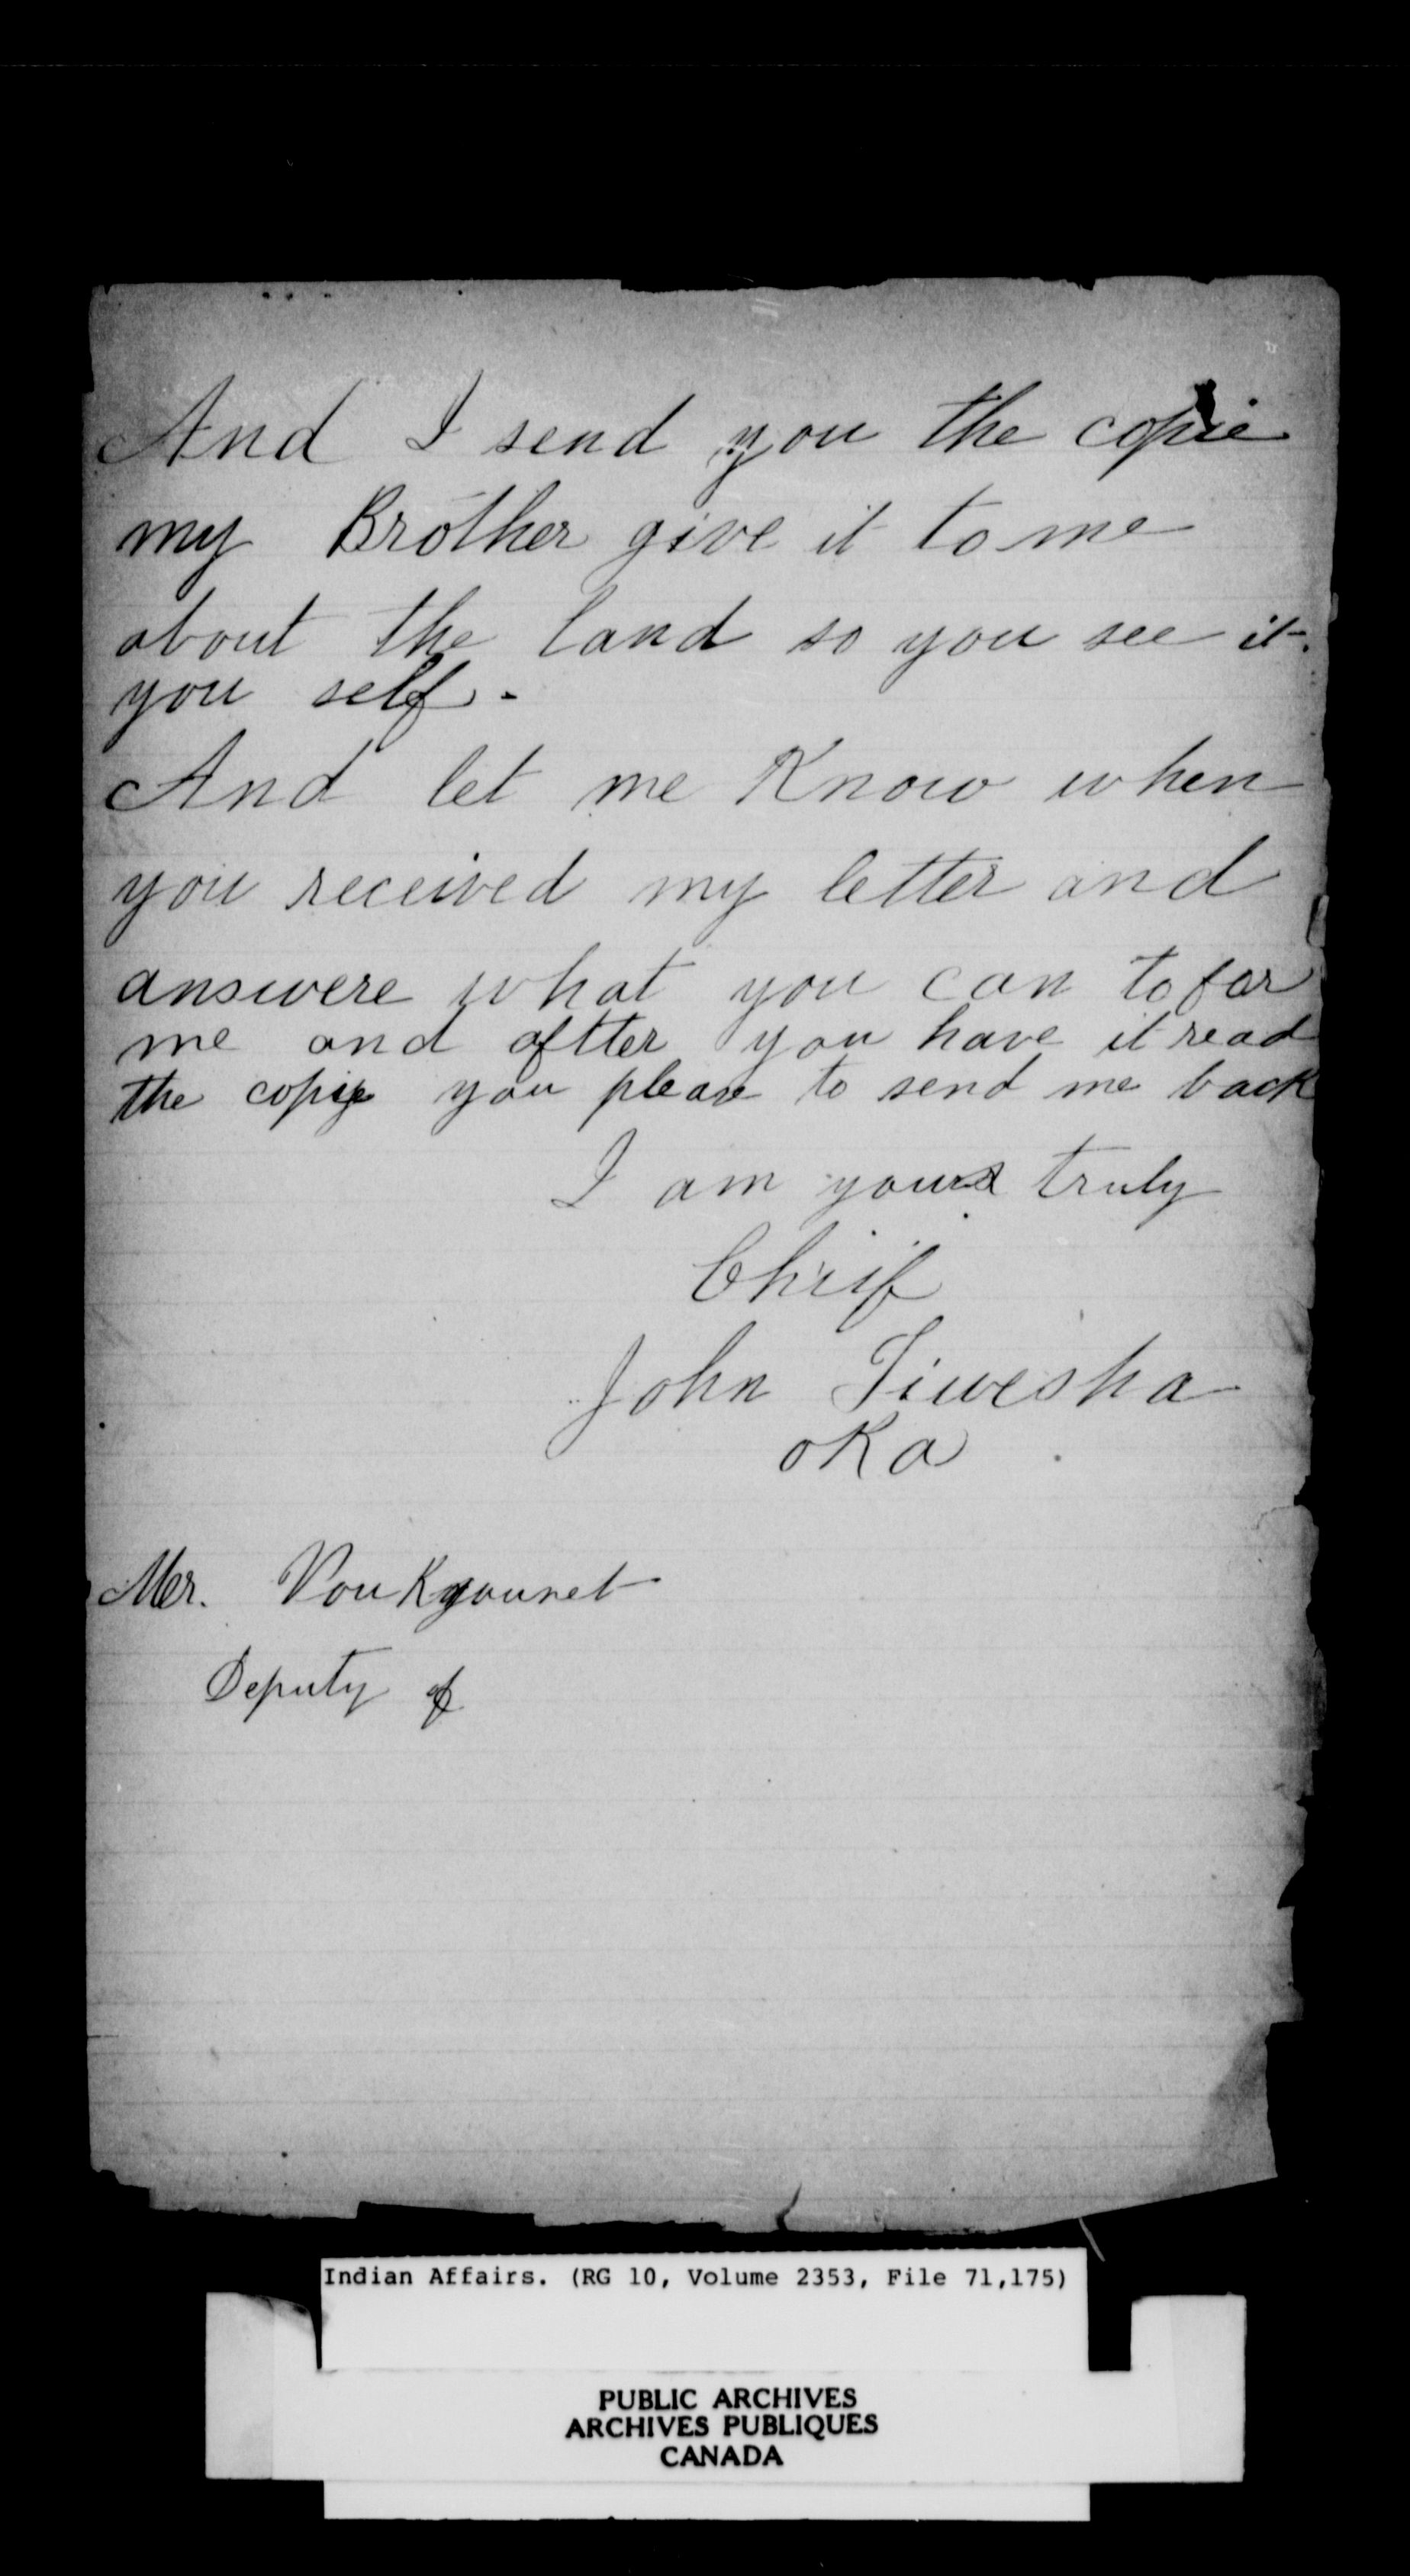 And I send you the copie
my Brother give it to me
about the land so you see it.
you self.
And let me Know when
you received my letter and
answere what you can to for
me and aftter you have it read
the copie you please to send me back
I am yours truly
Chiif
John Tiwesha
oKa
Mer. VouKgounet
Deputy of
Indian Affairs. (RG 10, Volume 2353, File 71,175)
PUBLIC ARCHIVES
ARCHIVES PUBLIQUES
CANADA